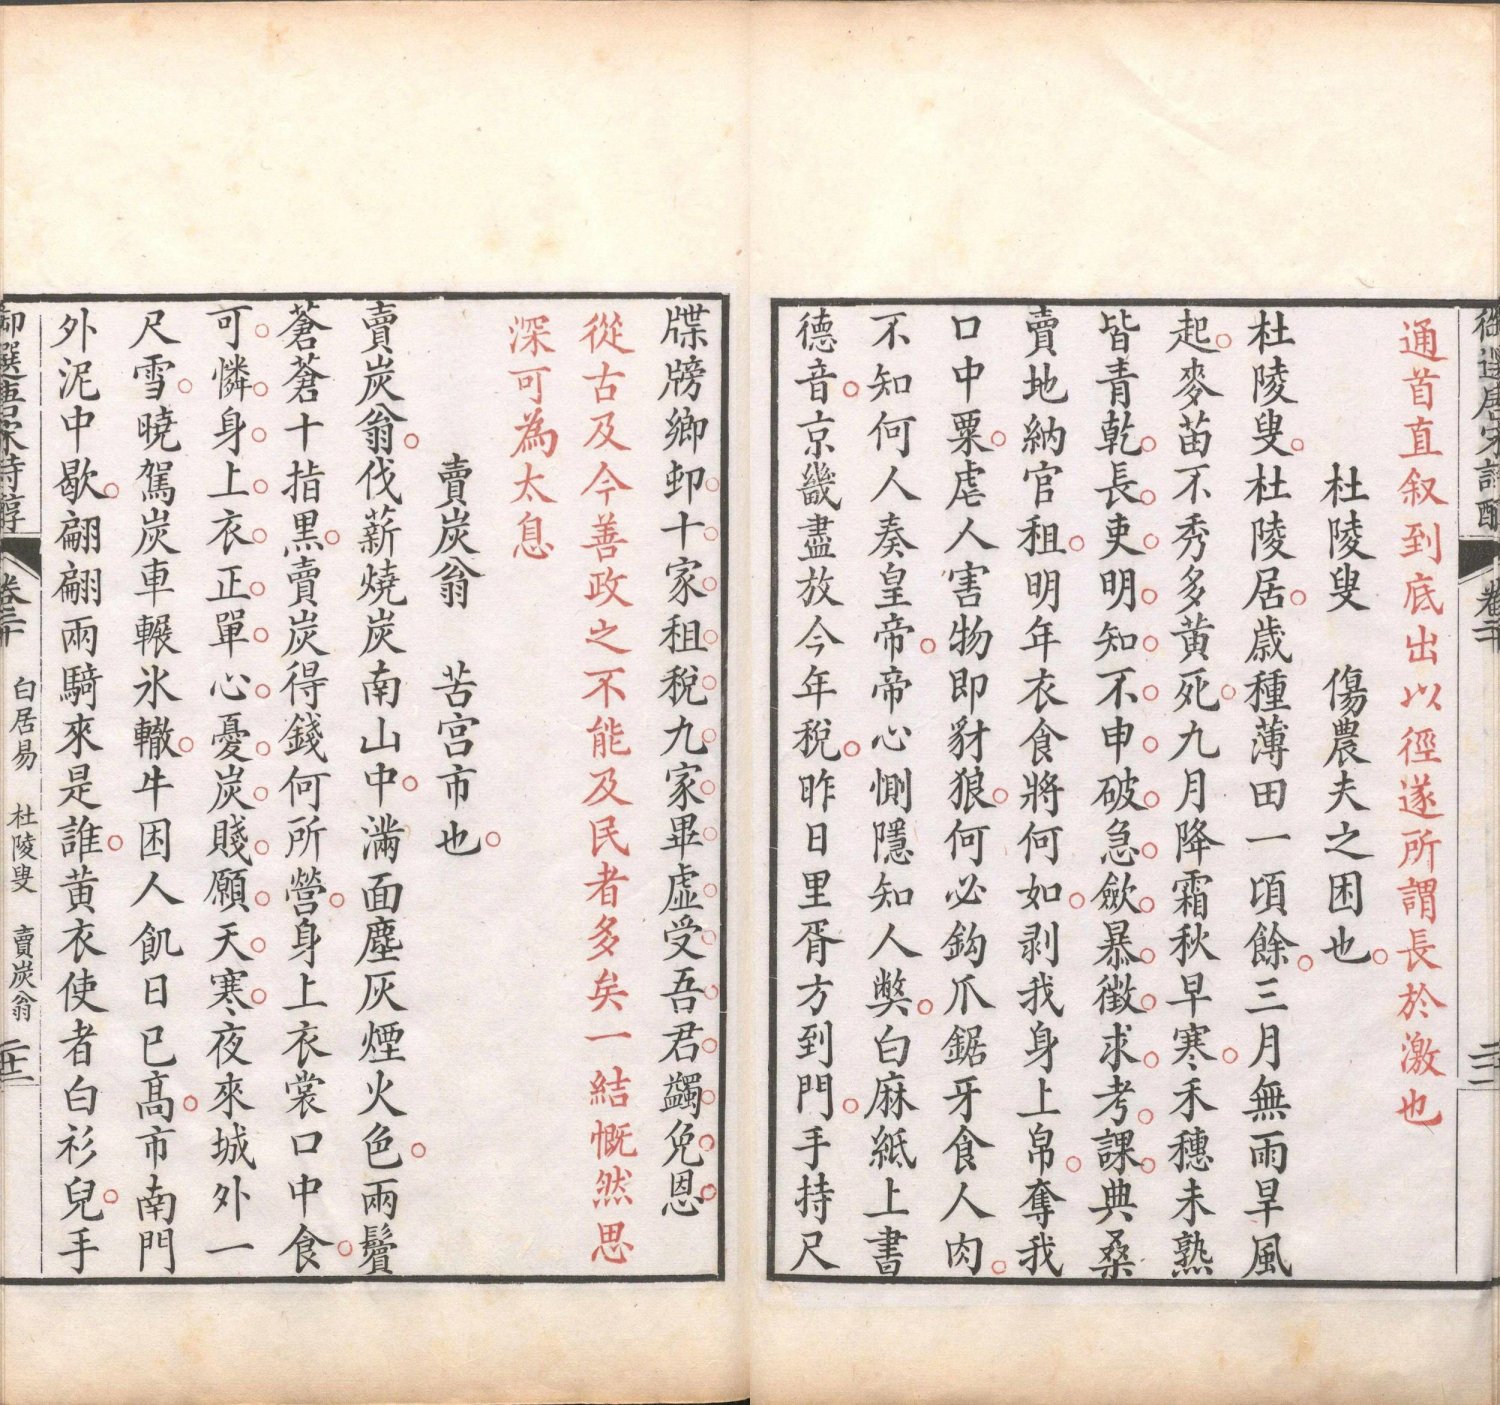 通首直叙到底出以徑遂所謂長於激也
杜陵叟　傷農夫之困也
杜陵叟杜陵居歲種薄田一頃餘三月無雨旱風
起麥苗不秀多黃死九月降霜秋早寒禾穗未熟
皆青乾長吏明知不申破急斂暴徵求考課典桑
賣地納官租明年衣食將何如剥我身上帛奪我
口中粟虐人害物即豺狼何必鈎爪鋸牙食人肉
不知何人奏皇帝帝心惻隱知人弊白麻紙上書
德音京畿盡放今年税昨日里胥方到門手持尺
牒牓鄉邨十家租税九家畢虛受吾君蠲免恩
從古及今善政之不能及民者多矣一結慨然思
深可為太息
賣炭翁　苦宫市也
賣炭翁伐薪燒炭南山中滿面塵灰煙火色兩鬢
蒼蒼十指黑賣炭得錢何所營身上衣裳口中食
可憐身上衣正單心憂炭賤願天寒夜來城外一
尺雪曉駕炭車輾氷轍牛困人飢日已高市南門
外泥中歇翩翩兩騎來是誰黃衣使者白衫兒手
御選唐宋詩醇　卷二十　白居易　杜陵叟　賣炭翁　二十二